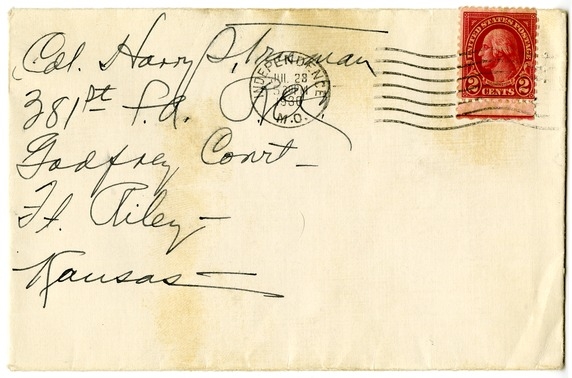 Col. Harry S. Truman
381st F.A.
Godfrey Court
Ft. Riley
Kansas
INDEPENDENCE
JUL 28
1930
MO.
UNITED STATES POSTAGE
2 CENTS 2